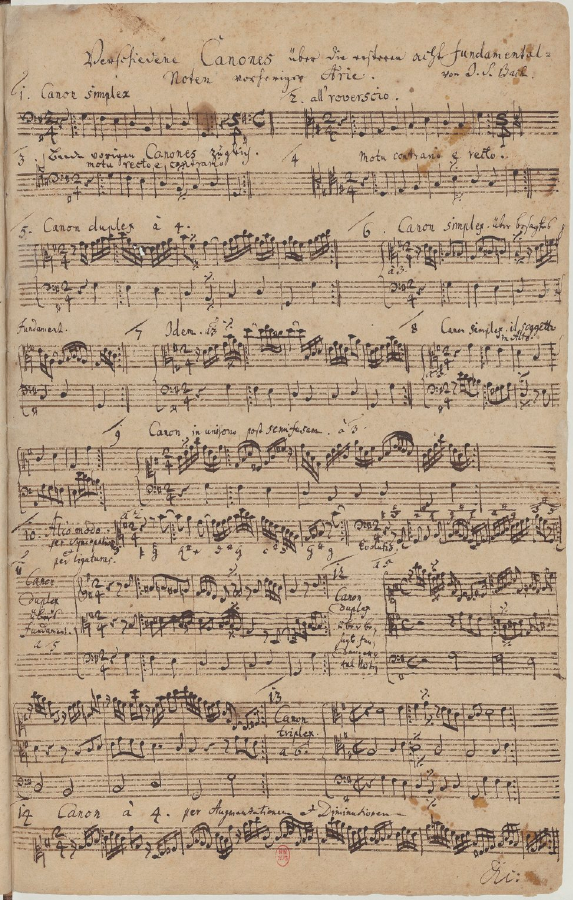 Verschiedene Canones über die ersteren acht Fundamental-
Noten vorheriger Arie. von J. S. Bach
1. Canon simplex
2. all' roverscio.
3 Beede vorigen Canones zugleich.
motu recto e contrario
4 motu contrario e recto.
5. Canon duplex à 4.
6. Canon simplex über besagtes
à 3.
Fundament.
7 Idem. à 3
8 Canon simplex il soggetto
in Alto
9 Canon in unisono post semifusam. à 3
10. Alio modo
per syncopationes
et per ligaturas.
à 2
Evolutio
11
Canon
duplex
übers
Fundament.
à 5
12
Canon
duplex
über be-
sagte fun-
damental Noten
à 5
13
Canon
triplex.
à 6.
14 Canon à 4. per Augmentationem et Diminutionem